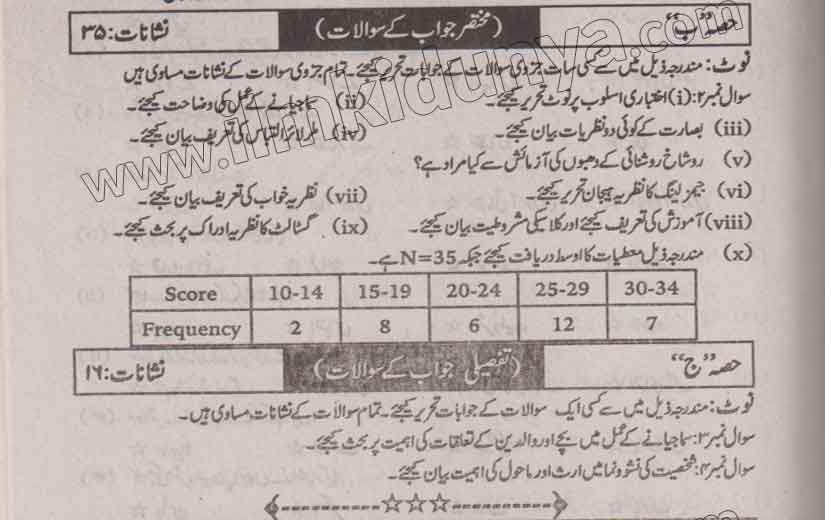 حصہ ”ب“ (مختصر جواب کے سوالات) نشانات: ۳۵
نوٹ: مندرجہ ذیل میں سے کسی سات جزوی سوالات کے جوابات تحریر کیجئے۔ تمام جزوی سوالات کے نشانات مساوی ہیں
سوال نمبر۲: (i) اختباری اسلوب پر نوٹ تحریر کیجئے۔ (ii) سماجیانے کے عمل کی وضاحت کیجئے۔
(iii) بصارت کے کوئی دو نظریات بیان کیجئے۔ (iv) التباس کی تعریف بیان کیجئے۔
(v) روشاخ روشنائی کے دھبوں کی آزمائش سے کیا مراد ہے؟
(vi) جیمز لینگ کا نظریہ ہیجان تحریر کیجئے۔ (vii) نظریہ خواب کی تعریف بیان کیجئے۔
(viii) آموزش کی تعریف کیجئے اور کلاسیکی مشروطیت بیان کیجئے۔ (ix) گسٹالٹ کا نظریہ ادراک پر بحث کیجئے۔
(x) مندرجہ ذیل معطیات کا اوسط دریافت کیجئے جبکہ N=35 ہے۔
Score 10-14 15-19 20-24 25-29 30-34
Frequency 2 8 6 12 7
حصہ ”ج“ (تفصیلی جواب کے سوالات) نشانات: ۱۶
نوٹ: مندرجہ ذیل میں سے کسی ایک سوالات کے جوابات تحریر کیجئے۔ تمام سوالات کے نشانات مساوی ہیں۔
سوال نمبر۳: سماجیانے کے عمل میں بچے اور والدین کے تعلقات کی اہمیت پر بحث کیجئے۔
سوال نمبر۴: شخصیت کی نشوونما میں ارث اور ماحول کی اہمیت بیان کیجئے۔
www.ilmkidunya.com